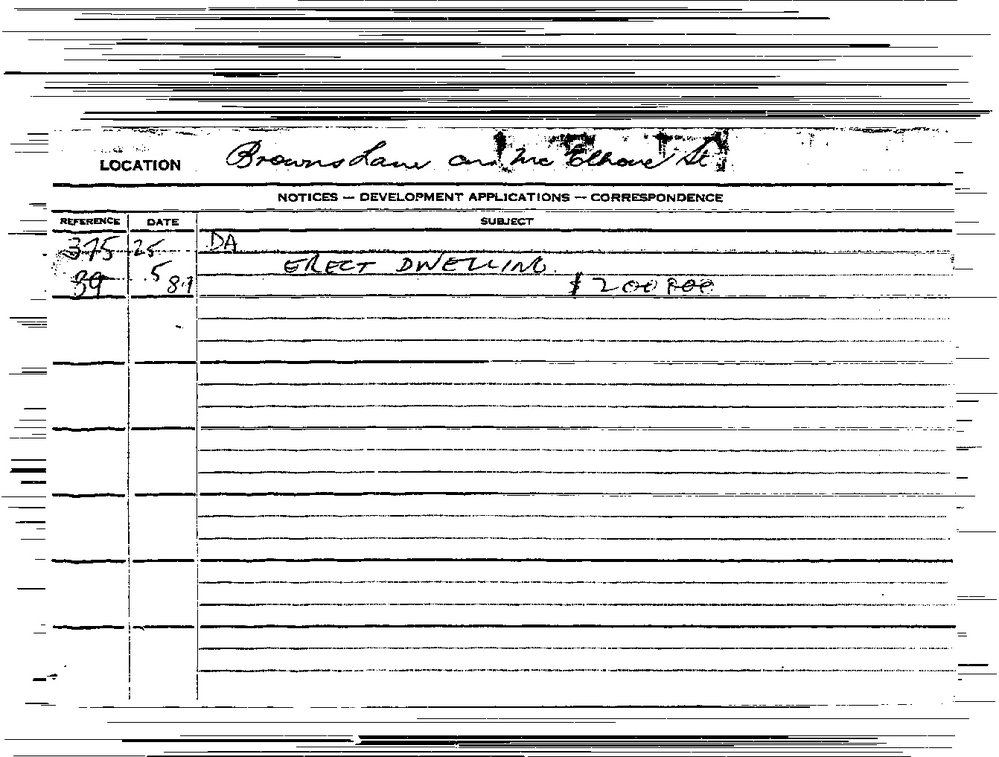 LOCATION Browns Lane and McElhone St
NOTICES — DEVELOPMENT APPLICATIONS — CORRESPONDENCE
REFERENCE DATE SUBJECT
375 25 DA
.5 ERECT DWELLING.
89 $200000